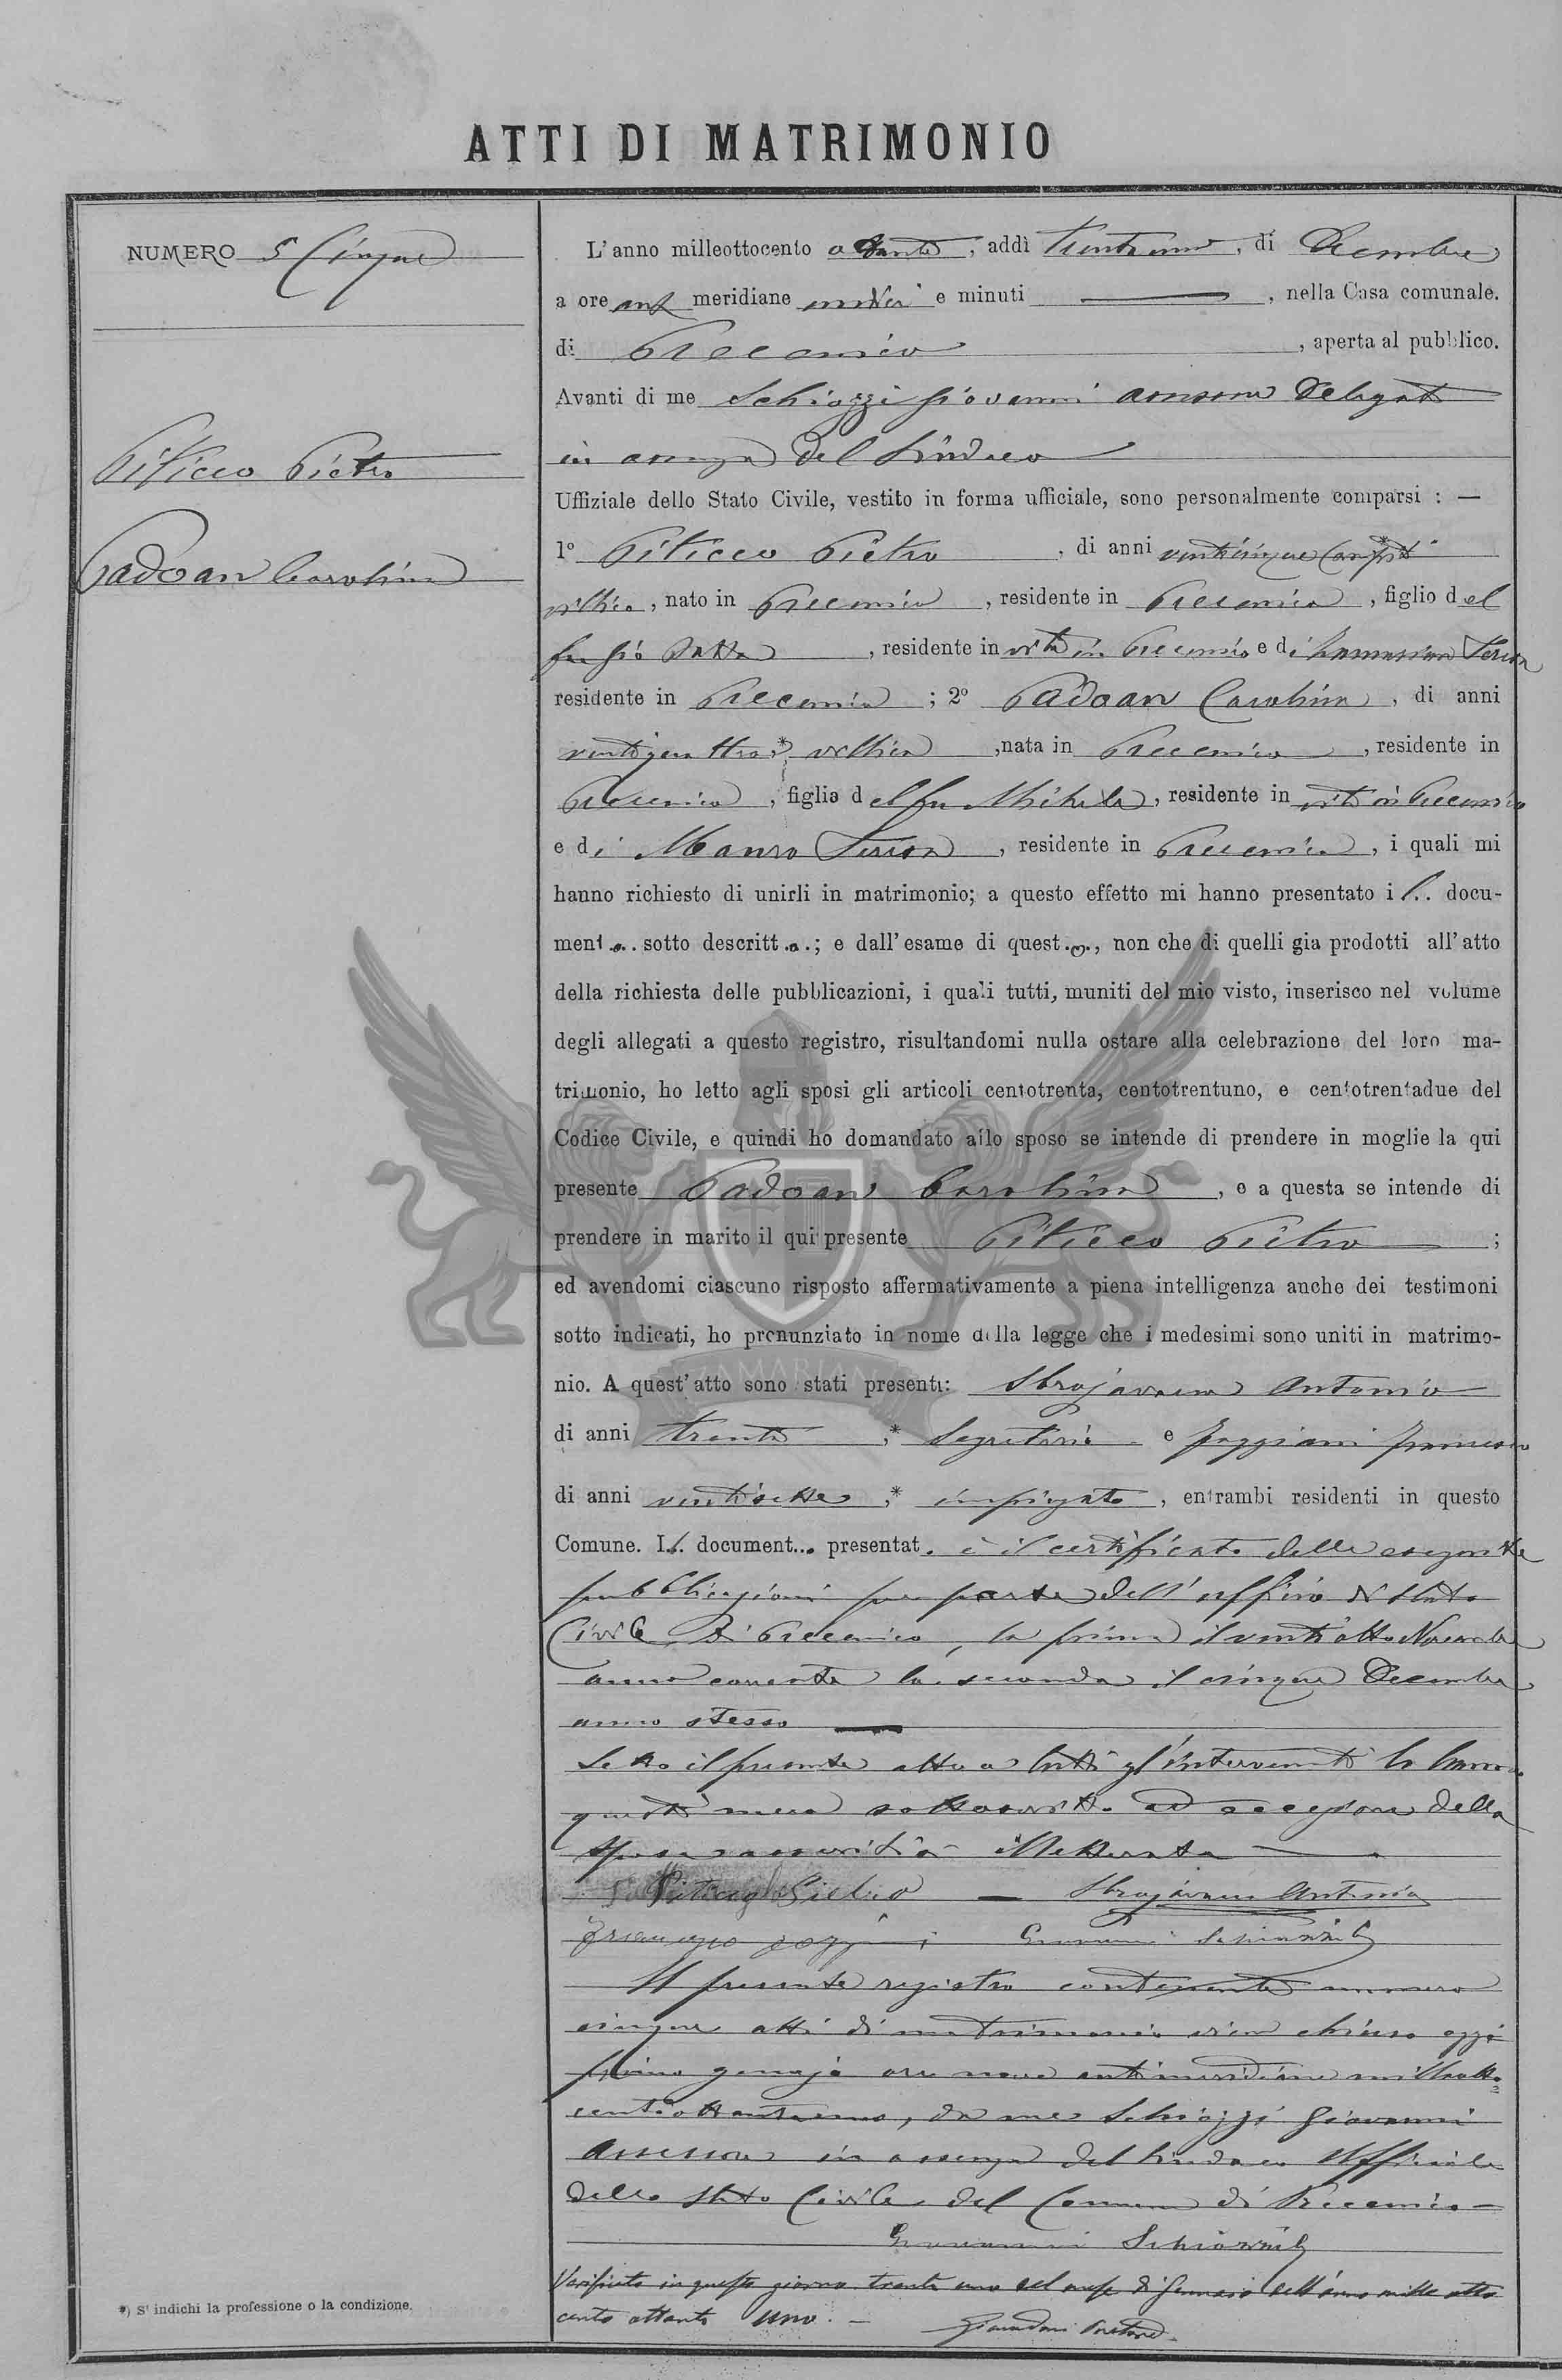 ATTI DI MATRIMONIO
NUMERO 5 Cinque
Piticco Pietro
Padoan Carolina
L'anno milleottocento ottanta, addì trentuno, di Decembre
a ore ant meridiane undici e minuti —, nella Casa comunale.
di Precenico, aperta al pubblico.
Avanti di me Schiozzi Giovanni assessore Delegato
in assenza del Sindaco
Uffiziale dello Stato Civile, vestito in forma ufficiale, sono personalmente comparsi : —
1º Piticco Pietro, di anni venticinque
villico, nato in Precenico, residente in Precenico, figlio del
fu Gio Batta, residente in vita in Precenico e di Teresa
residente in Precenico ; 2º Padoan Carolina, di anni
ventiquattro * villica, nata in Precenico, residente in
Precenico, figlia del fu Michele, residente in vita in Precenico
e di Mauro Teresa, residente in Precenico, i quali mi
hanno richiesto di unirli in matrimonio; a questo effetto mi hanno presentato il.. docu-
ment o.. sotto descritt.o.; e dall'esame di quest.o., non che di quelli gia prodotti all'atto
della richiesta delle pubblicazioni, i quali tutti, muniti del mio visto, inserisco nel volume
degli allegati a questo registro, risultandomi nulla ostare alla celebrazione del loro ma-
trimonio, ho letto agli sposi gli articoli centotrenta, centotrentuno, e centotrentadue del
Codice Civile, e quindi ho domandato allo sposo se intende di prendere in moglie la qui
presente Padoan Carolina, e a questa se intende di
prendere in marito il qui presente Piticco Pietro ;
ed avendomi ciascuno risposto affermativamente a piena intelligenza anche dei testimoni
sotto indicati, ho pronunziato in nome della legge che i medesimi sono uniti in matrimo-
nio. A quest'atto sono stati presenti: Sbrojavacca Antonio
di anni trenta,* Segretario e Poggiani Francesco
di anni ventisette,* impiegato, entrambi residenti in questo
Comune. Il. document... presentat. è il certificato delle eseguite
pubblicazioni per parte dell'uffizio di Stato
Civile di Precenico, la prima il ventiotto Novembre
anno corrente la seconda il cinque Decembre
anno stesso
Letto il presente atto a tutti gl'intervenuti lo hanno
questi meco sottoscritto ad eccezione della
sposa illetterata
Piticco Pietro — Sbrojavacca Antonio
Francesco Poggiani Giovanni Schiozzi
Il presente registro contenente numero
cinque atti di matrimonio viene chiuso oggi
primo genajo ore nove antimeridiane milleotto=
centoottantauno, da me Schiozzi Giovanni
Assessore in assenza del Sindaco Ufficiale
dello Stato Civile del Comune di Precenico —
Giovanni Schiozzi
Verificato in questo giorno trenta uno del mese di Gennaio dell'anno mille otto
cento ottanta uno. —
Pretore
*) S' indichi la professione o la condizione.
ZAMARIAN